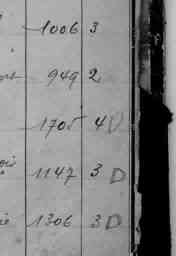 1006 3
949 2
1705 4 D
1147 3 D
1306 3 D